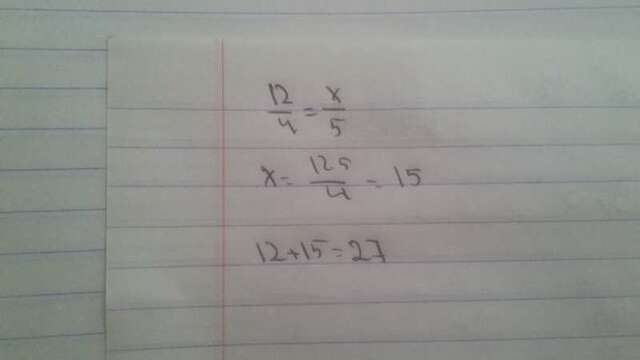 12/4 = x/5
x = 12 5/4 = 15
12+15=27